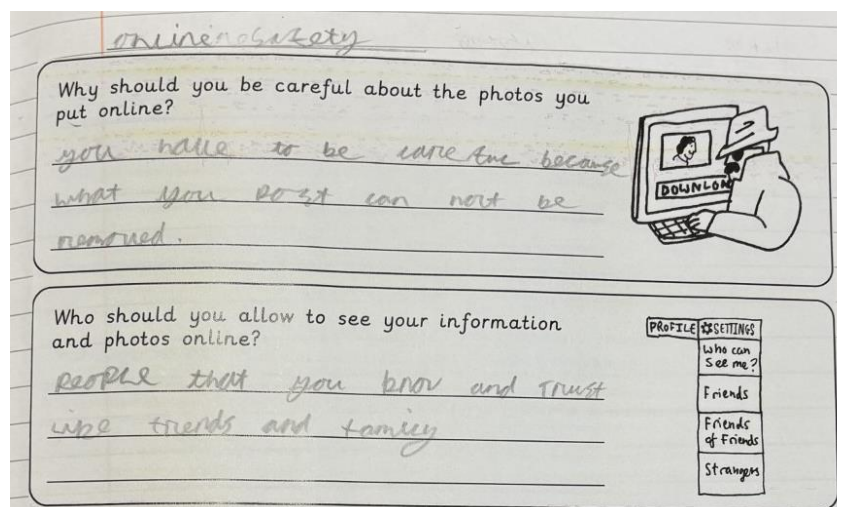 online safety
Why should you be careful about the photos you
put online?
you have to be careful because
what you post can not be
removed.
DOWNLOA
Who should you allow to see your information
and photos online?
people that you know and Trust
like friends and family
PROFILE SETTINGS
Who can
see me?
Friends
Friends
of Friends
Strangers